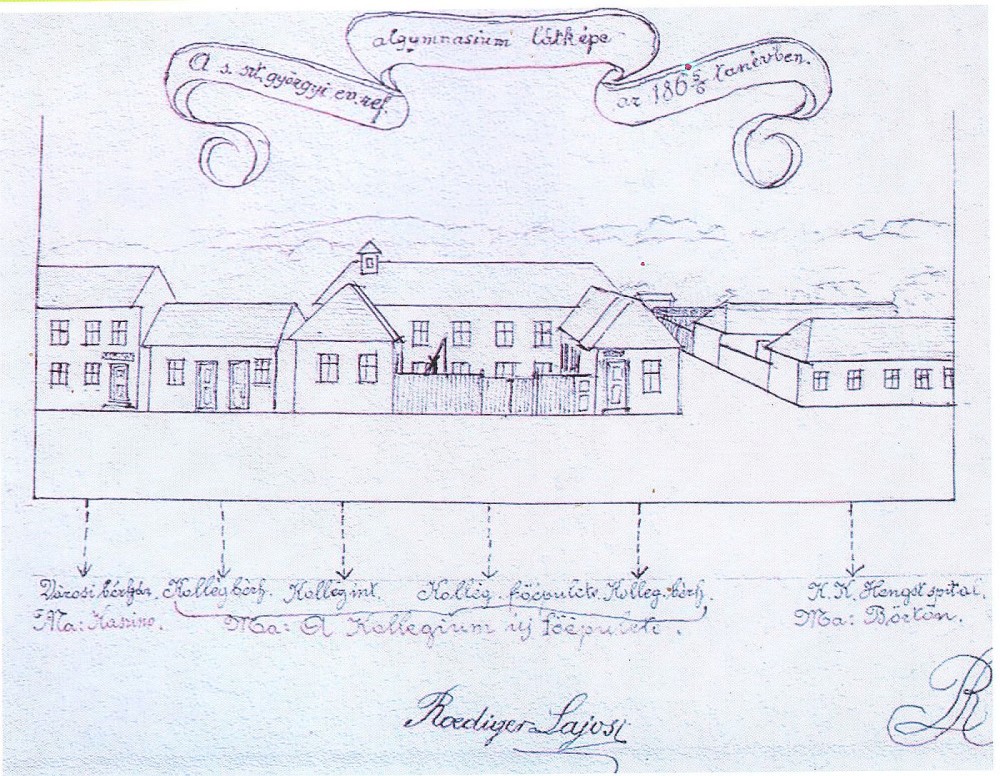 A s. szt. györgyi ev. ref.
algymnasium látképe
az 186 5/6 tanévben.
Városi bérház. Kolleg bérh. Kolleg int. Kolleg. főépülete Kolleg. bérh. K. K. Hengst spital.
Ma: Kaszino. Ma: A Kollegium uj főépülete. Ma: Börtön.
Roediger Lajos
R